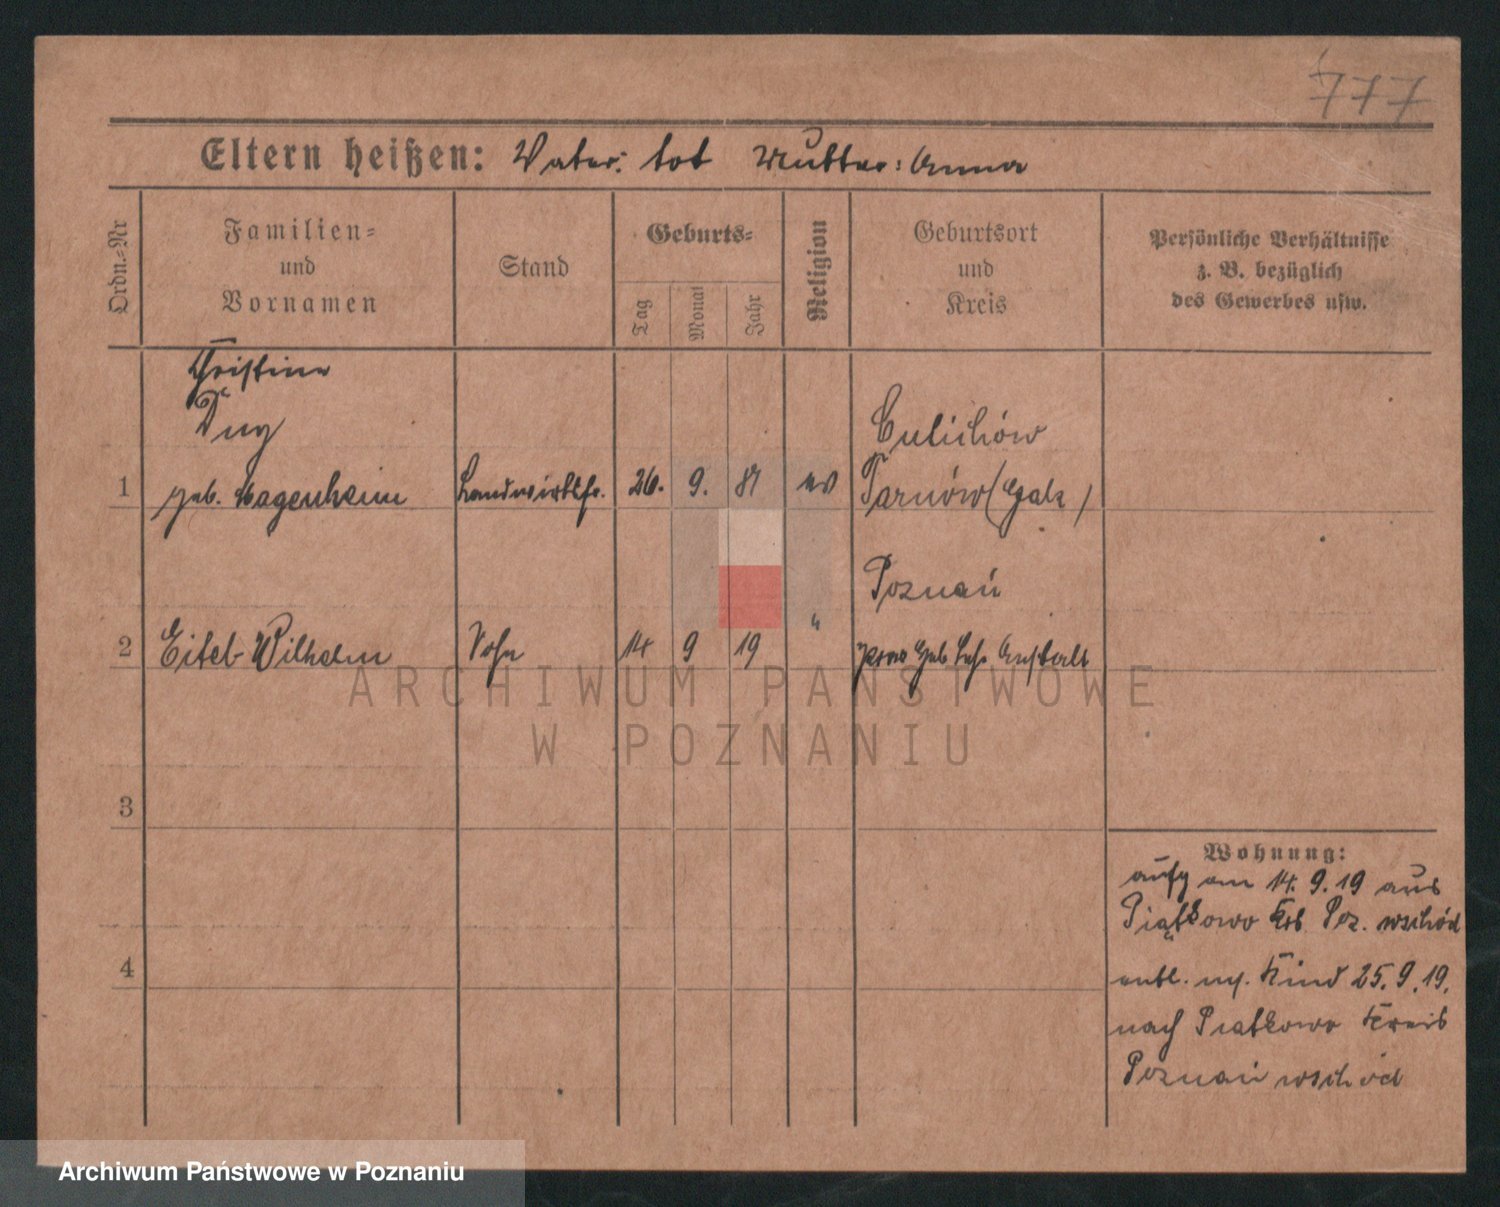 777
Eltern heißen: Vater: tot Mutter: Anna
Ordn.-Nr
Familien-
und
Vornamen
Stand
Geburts-
Tag
Monat
Jahr
Religion
Geburtsort
und
Kreis
Persönliche Verhältnisse
z. B. bezüglich
des Gewerbes usw.
Christine
Duy
1 geb. Wagenheim Landwirtsfr. 26. 9. 81 ev
Culichów
Tarnów (Galz)
Poznań
2 Eitel-Wilhelm Sohn 14 9 19 "
prov Geb Lehr Anstalt
3
4
Wohnung:
aufg am 14. 9. 19 aus
Piątkowo Krs Poz. wschód
entl. m. Kind 25. 9. 19.
nach Piatkowo Kreis
Poznań wschód
ARCHIWUM PAŃSTWOWE
W POZNANIU
Archiwum Państwowe w Poznaniu